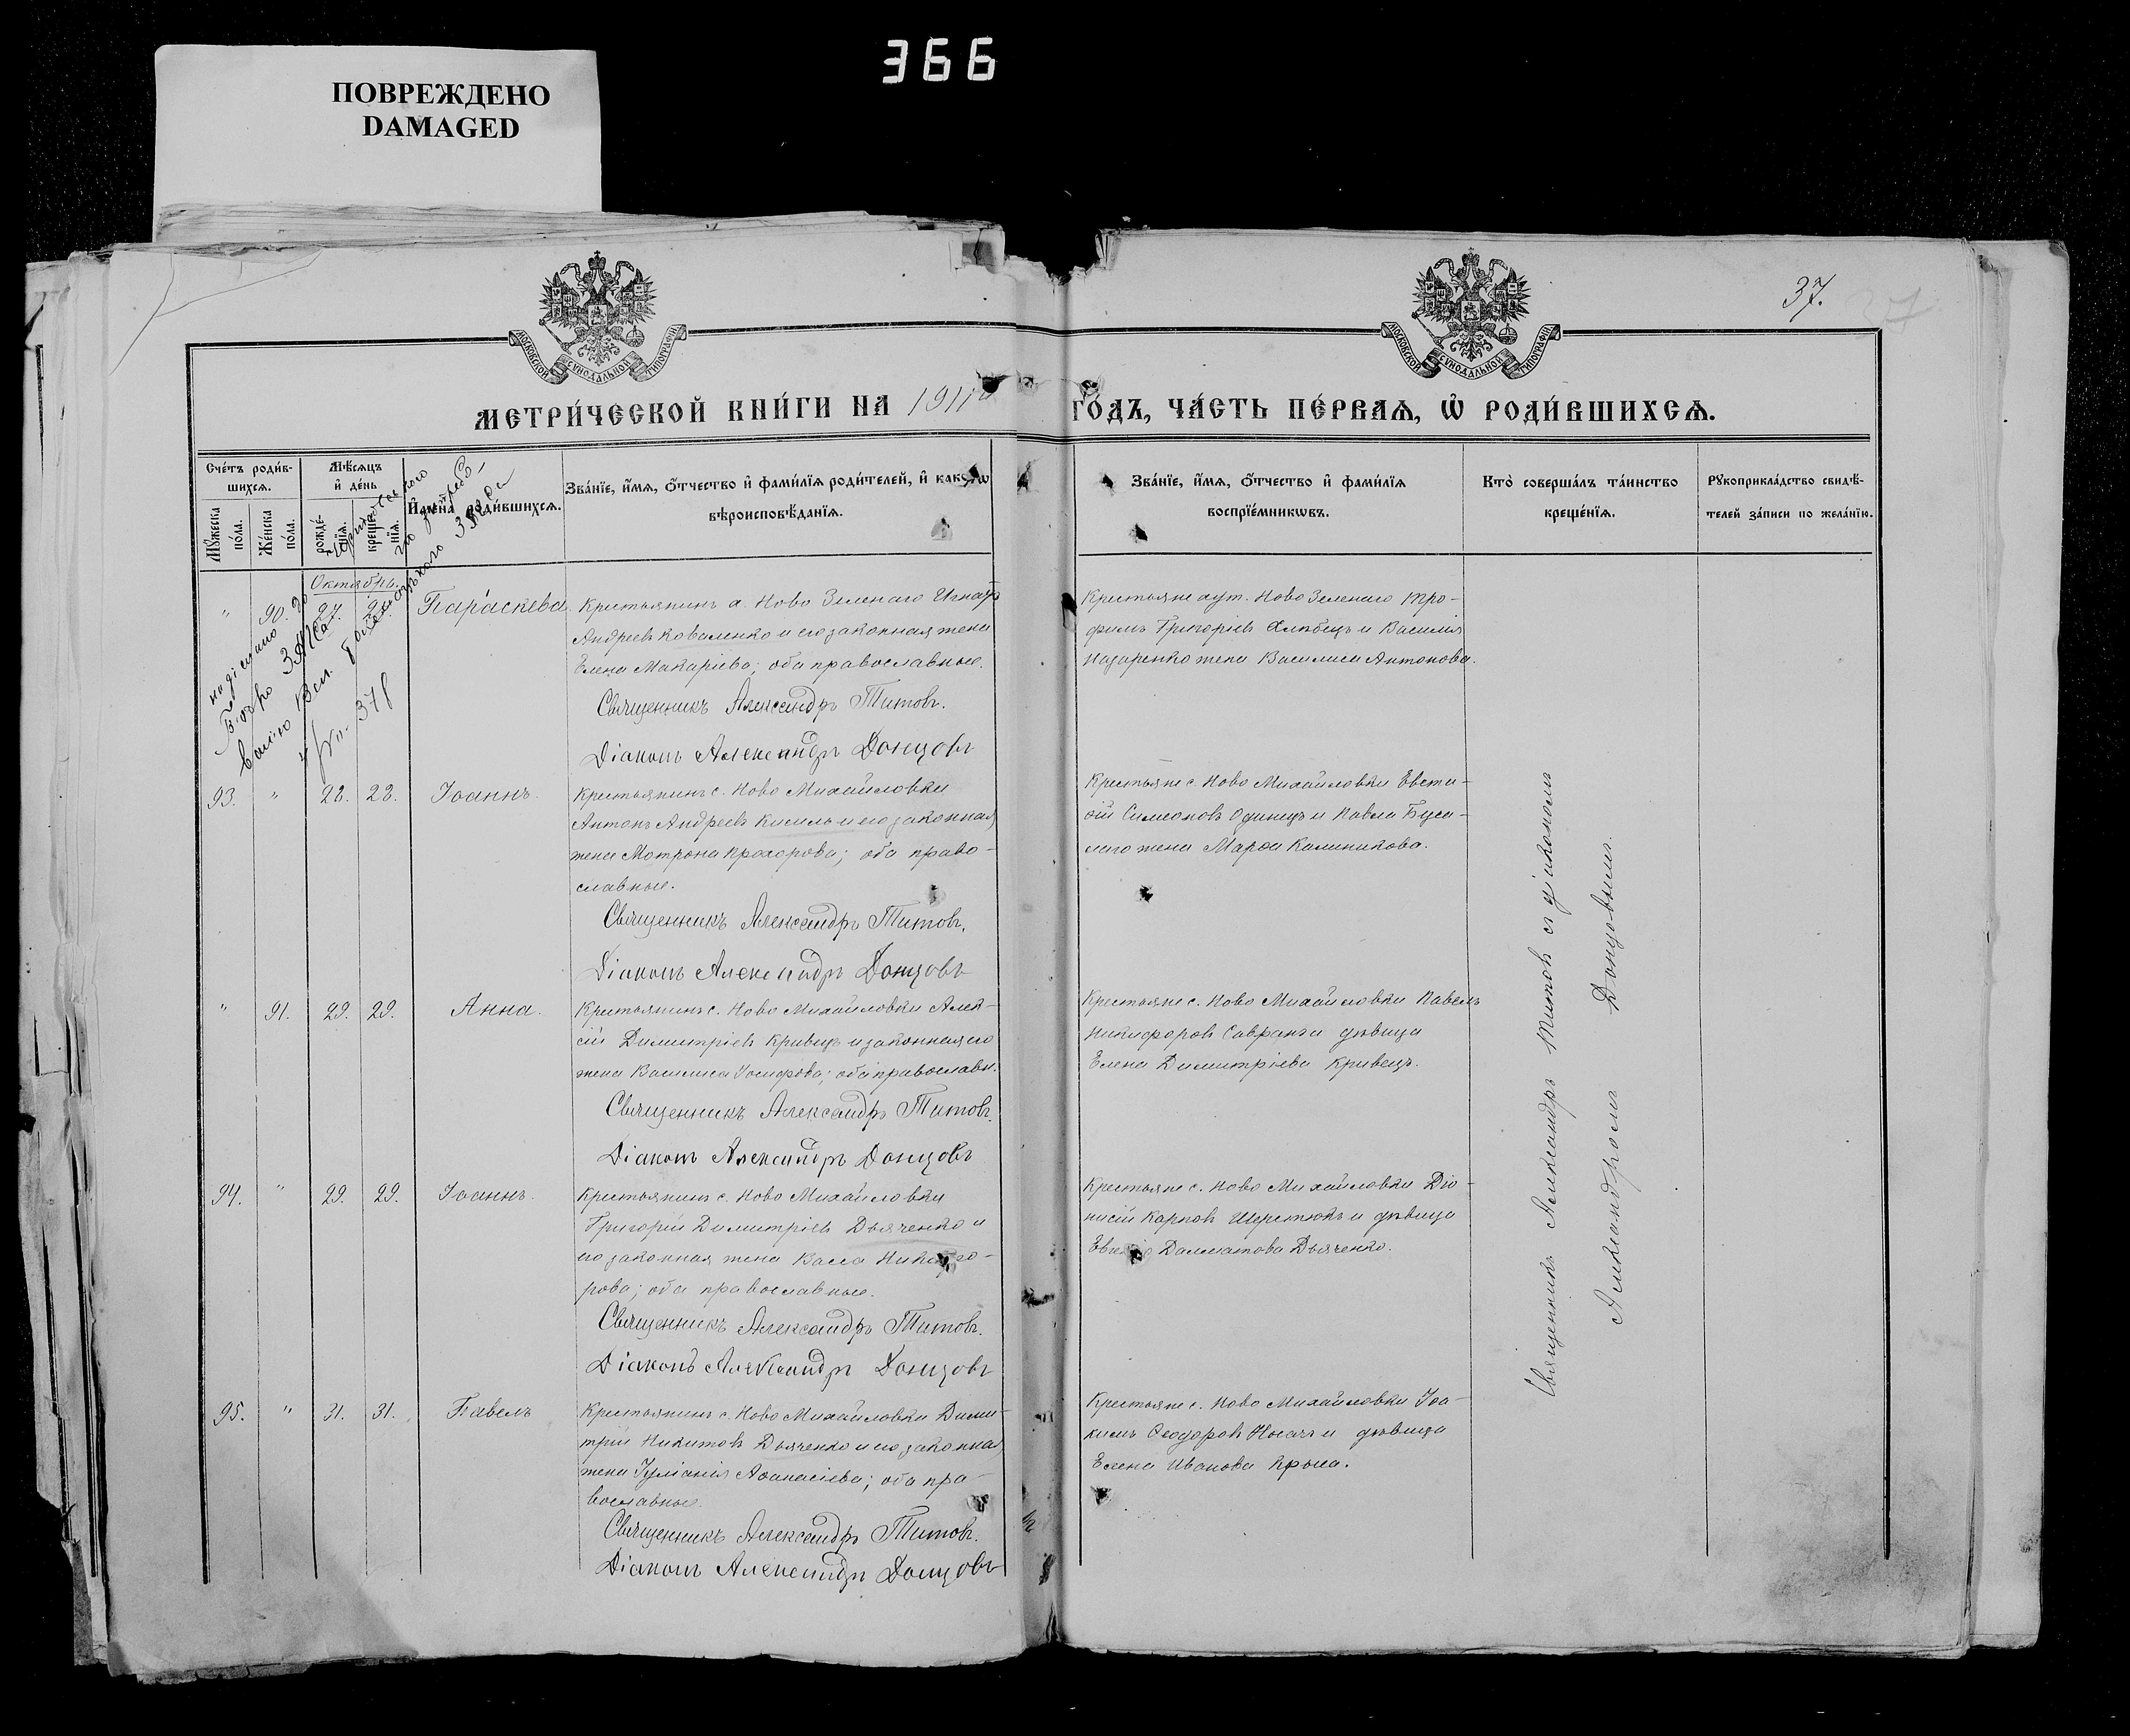 366
ПОВРЕЖДЕНО
DAMAGED
МОСКОВСКОЙ СѴНОДАЛЬНОЙ ТИПОГРАФІИ
МОСКОВСКОЙ СѴНОДАЛЬНОЙ ТИПОГРАФІИ
37.
37
МЕТРИ́ЧЕСКОЙ КНИ́ГИ НА 1911й ГО́ДЪ, ЧА́СТЬ ПЕ́РВАѦ, Ѡ҆ РОДИ́ВШИХСѦ.
Сче́тъ роди́в-
шихсѧ.
Мꙋ́жеска по́ла.
Же́нска по́ла.
Мѣ́сѧцъ
и҆ де́нь
рожде́-
нїѧ.
креще́-
нїѧ.
И҆мена̀ роди́вшихсѧ.
Зва́нїе, и҆́мѧ, ѻ҆́тчество и҆ фами́лїѧ роди́телей, и҆ како́гѡ
вѣроисповѣ́данїѧ.
Зва́нїе, и҆́мѧ, ѻ҆́тчество и҆ фами́лїѧ
воспрїе́мникѡвъ.
Кто̀ соверша́лъ та́инство
креще́нїѧ.
Рꙋкоприкла́дство свидѣ́-
телей за́писи по жела́нїю.
Октябрь.
" 90. 27. Параскева
Крестьянинъ х. Ново Зеленаго Игнатъ
Андреевъ Коваленко и его законная жена
Елена Макаріева; оба православные.
Священникъ Александръ Титовъ.
Діаконъ Александръ Донцовъ
Крестьяне хут. Ново Зеленаго Тро-
фимъ Григоріевъ Хлѣбецъ и Василія
Назаренко жена Василиса Антонова.
надіслано
Бюро ЗАГСа
378
93. " 28. 28. Іоаннъ.
Крестьянинъ с. Ново Михайловки
Антонъ Андреевъ Кисиль и его законная
жена Мотрона Прохорова; оба право-
славные.
Священникъ Александръ Титовъ.
Діаконъ Александръ Донцовъ
Крестьяне с. Ново Михайловки Евста-
ѳій Симеоновъ Одинецъ и Павла Буса-
лаго жена Марѳа Калиникова.
" 91. 29. 29. Анна.
Крестьянинъ с. Ново Михайловки Алек-
сій Димитріевъ Кривецъ и законная его
жена Василиса Іосифова; оба православн.
Священникъ Александръ Титовъ.
Діаконъ Александръ Донцовъ
Крестьяне с. Ново Михайловки Павелъ
Никифоровъ Савранъ и дѣвица
Елена Димитріева Кривецъ.
94. " 29. 29. Іоаннъ.
Крестьянинъ с. Ново Михайловки
Григорій Димитріевъ Дьяченко и
его законная жена Васса Никифо-
рова; оба православные.
Священникъ Александръ Титовъ.
Діаконъ Александръ Донцовъ
Крестьяне с. Ново Михайловки Діо-
нисій Карповъ Шерстюкъ и дѣвица
Далматова Дьяченко.
95. " 31. 31. Павелъ
Крестьянинъ с. Ново Михайловки Дими-
трій Никитовъ Дьяченко и его законная
жена Іуліанія Аѳанасіева; оба пра-
вославные.
Священникъ Александръ Титовъ.
Діаконъ Александръ Донцовъ
Крестьяне с. Ново Михайловки Іоа-
кимъ Ѳеодоровъ Носачъ и дѣвица
Елена Иванова Крыса.
Священникъ Александръ Титовъ съ діакономъ
Александромъ Донцовымъ.